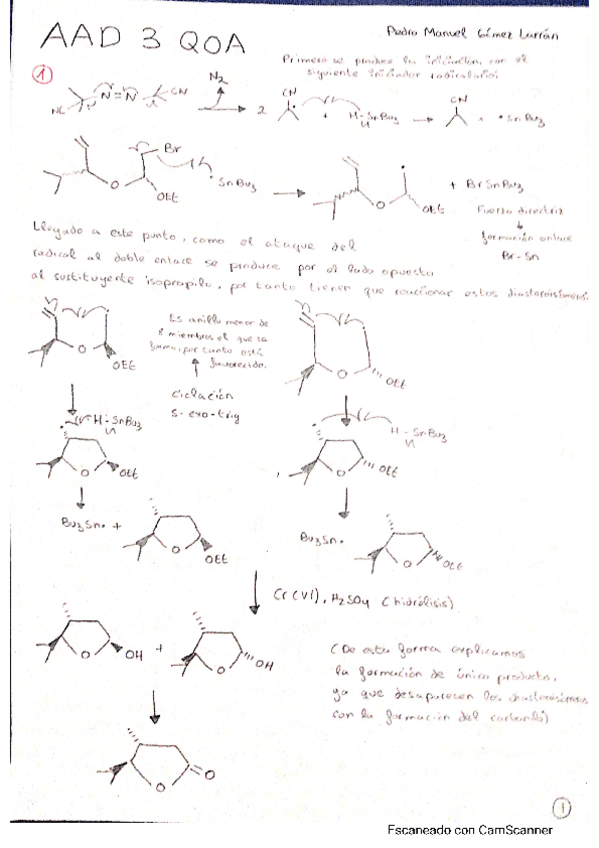 AAD 3 QOA
Pedro Manuel Gómez Larrán
Primero se produce la iniciación con el
siguiente iniciador radicalario:
1
NC N=N CN
N2
2
CN
+ H-SnBu3
CN
+ •SnBu3
Br
O
OEt
•SnBu3
O
OEt
+ BrSnBu3
Fuerza directriz
formación enlace
Br-Sn
Llegado a este punto, como el ataque del
radical al doble enlace se produce por el lado opuesto
al sustituyente isopropilo, por tanto tienen que reaccionar estos
O
OEt
Es anillo menor de
8 miembros el que se
forma, por tanto está
favorecido.
Ciclación
5-exo-trig
O
OEt
H-SnBu3
O
OEt
H-SnBu3
O
OEt
Bu3Sn• +
O
OEt
Bu3Sn•
O
OEt
Cr(VI), H2SO4 (hidrólisis)
O
OH
+
O
OH
(De esta forma explicamos
la formación de único producto,
ya que desaparecen los
con la formación del carbonilo)
O
O
1
Escaneado con CamScanner